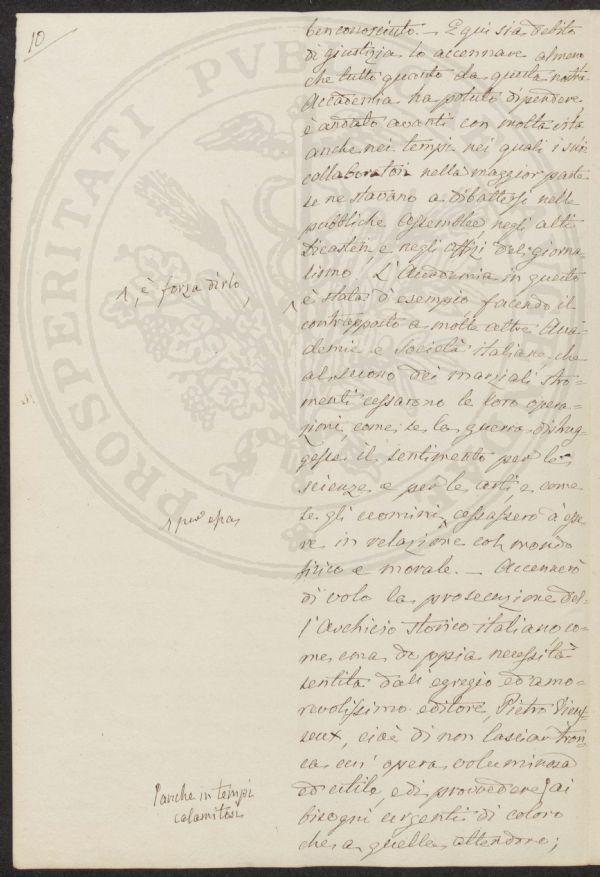 10
ben conosciuto. — E qui sia debito
di giustizia lo accennare almeno
che tutto quanto da questa nostra
Accademia ha potuto dipendere
è andato avanti con molta
anche nei tempi nei quali i suoi
collaboratori nella maggior parte
se ne stavano a dibattersi nelle
pubbliche Assemblee, negli alti
Dicasteri, e negli Uffizi del gior-
nalismo. L'Accademia in questo
1, è forza dirlo,
è stata d'esempio facendo il
contrapposto a molte altre Acca-
demie e Società italiane che
al suono dei marziali stro-
menti cessarono le loro opera-
zioni, come se la guerra distrug-
gesse il sentimento per le
scienze e per le arti, e come
se gli uomini cessassero d'esse-
1 per essa
re in relazione col mondo
fisico e morale. — Accennerò
di volo la prosecuzione del-
l'Archivio storico italiano co-
me una doppia necessità
sentita dall'egregio ed amo-
revolissimo editore, Pietro Vieus-
seux, cioè di non lasciar tron-
ca un'opera voluminosa
ed utile, e di provvedere ai
anche in tempi
calamitosi
bisogni urgenti di coloro
che a quella attendono;
PROSPERITATI PVB